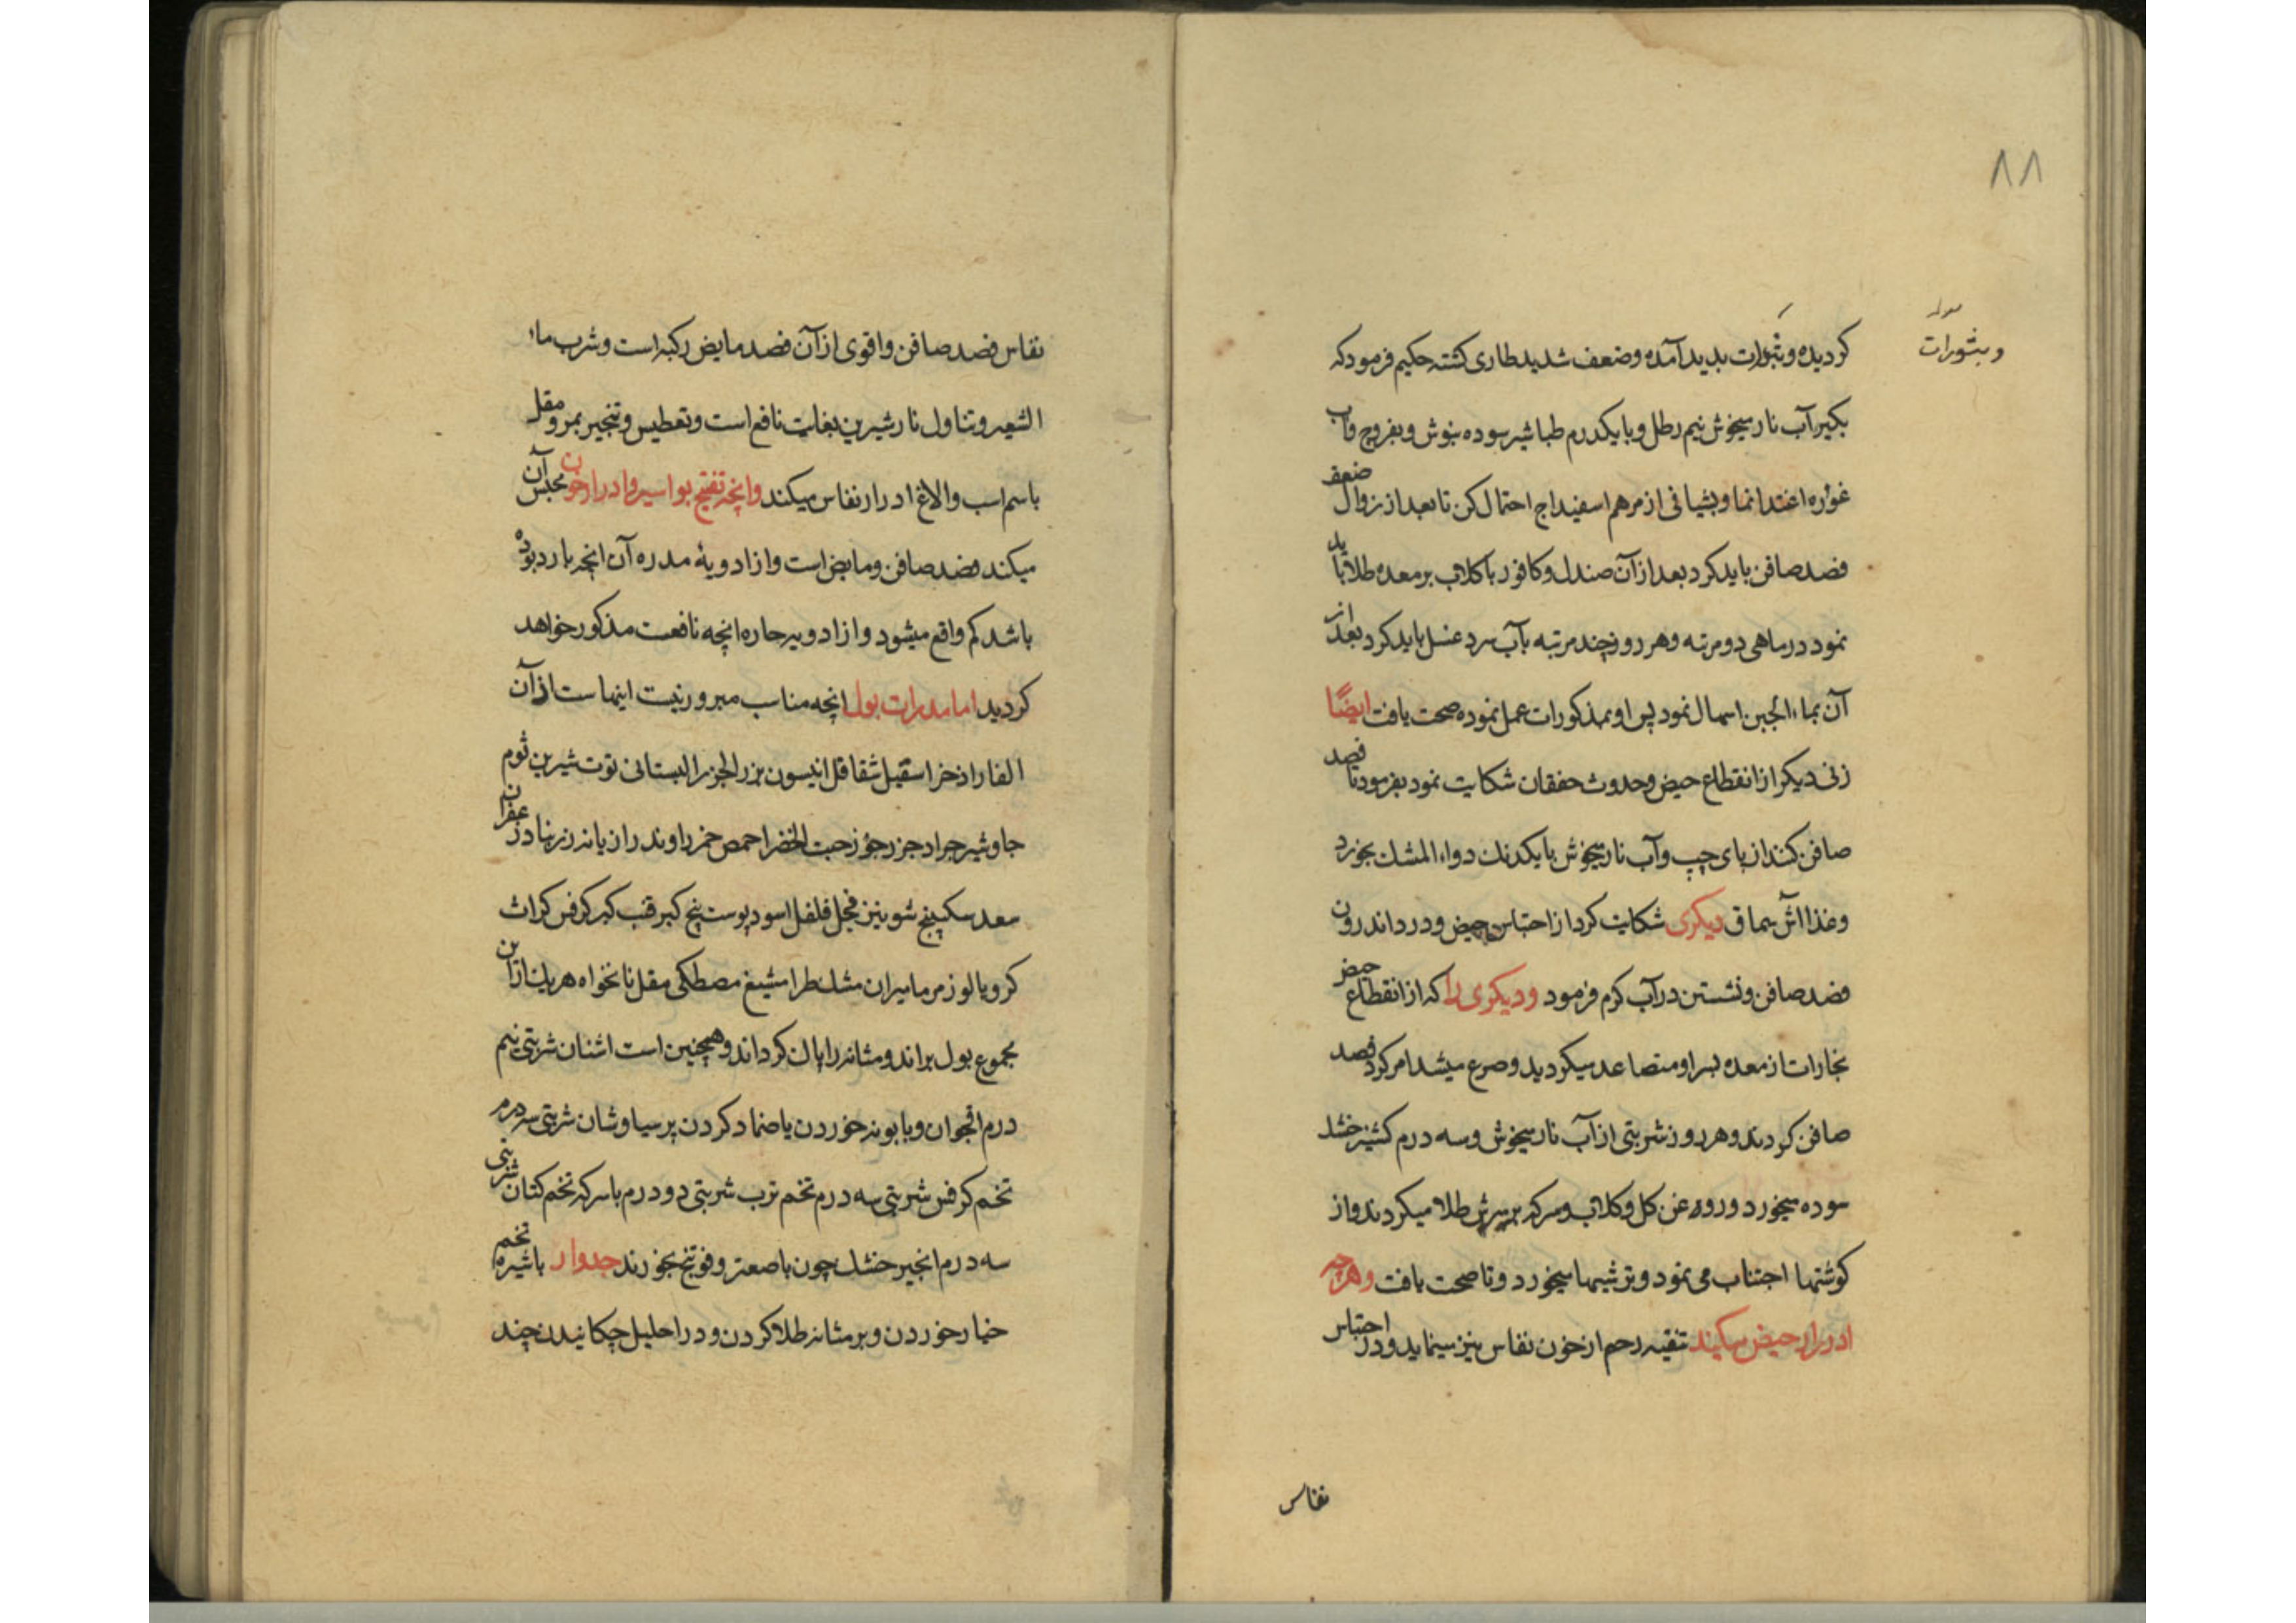 ۸۸
وبثورات
کردیده وبثورات بدید آمده وضعف شدید طاری کشته حکیم فرمود که
بکیر آب نار میخوش نیم رطل وبا یکدرم طباشیر سوده بنوش وبفروج وآب
غوره اغتدا نما وبشیافی از مرهم اسفیداج احتمال کن تا بعد از زوال ضعف
فصد صافن باید کرد بعد از آن صندل وکافور باکلاب بر معده طلا باید
نمود در ماهی دو مرتبه وهر روز چند مرتبه بآب سرد غسل باید کرد بعد از
آن بماء الجبن اسهال نمود پس او بمذکورات عمل نموده صحت یافت ایضًا
زنی دیکر از انقطاع حیض وحدوث خفقان شکایت نمود بفرمود تا فصد
صافن کنند از پای چپ وآب نار میخوش با یکدنك دواء المشك بخورد
وغذا آش سماق دیکری شکایت کرد از احتباس حیض ودرد اندرون
فصد صافن ونشستن در آب کرم فرمود ودیکری را که از انقطاع حیض
بخارات از معده بسر او متصاعد میکردید وصرع میشد امر کرد فصد
صافن کردند وهر روز شربتی از آب نار میخوش وسه درم کشنیز خشك
سوده میخورد وروغن کل وکلاب وسرکه بر سرش طلا میکردند واز
کوشتها اجتناب می نمود وترشیها میخورد وتا صحت یافت وهرچه
ادرار حیض میکند تنقیه رحم از خون نفاس نیز مینماید ودر احتباس
نفاس
نفاس فصد صافن واقوی از آن فصد مابض رکبه است وشرب ماء
الشعیر وتناول نار شیرین بغایت نافع است وتعطیس وتبخیر بمر ومقل
باسم اسب والاغ ادرار نفاس میکند وانچه تفتیح بواسیر وادرار خون محتبس آن
میکند فصد صافن ومابض است واز ادویهٔ مدره آن انچه بارد بوده
باشد کم واقع میشود واز ادویه حاره انچه نافعست مذکور خواهد
کردید اما مدرات بول انچه مناسب مبرود نیست اینهاست اذآن
الفار اذخر اسقیل شقاقل انیسون بزر الجزر البستانی توت شیرین ثوم
جاوشیر جراد جزر جوز حبت الخضرا حمص خمر راوند رازیانه زرنباد زعفران
سعد سکبینج شونیز فجل فلفل اسود پوست بیخ کبر قنب کبر کرفس کراث
کرویا لوز مر مامیران مشك طرامشیغ مصطکی مقل نانخواه هریك ازاین
مجموع بول براند ومثانه را پاك کرداند وهمچنین است اشنان شربتی نیم
درم اقحوان وبابونه خوردن یا ضماد کردن پرسیاوشان شربتی سه درم
تخم کرفس شربتی سه درم تخم ترب شربتی دو درم با سرکه تخم کتان شربتی
سه درم انجیر خشك چون با صعتر وفوتنج بخورند جدوار با شیره تخم
خیار خوردن وبر مثانه طلا کردن ودر احلیل چکانیدن چند